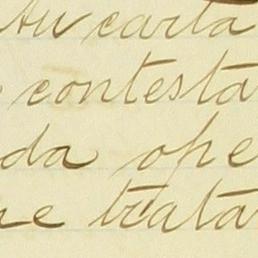 tu carta
contesta
da ope
ue trata